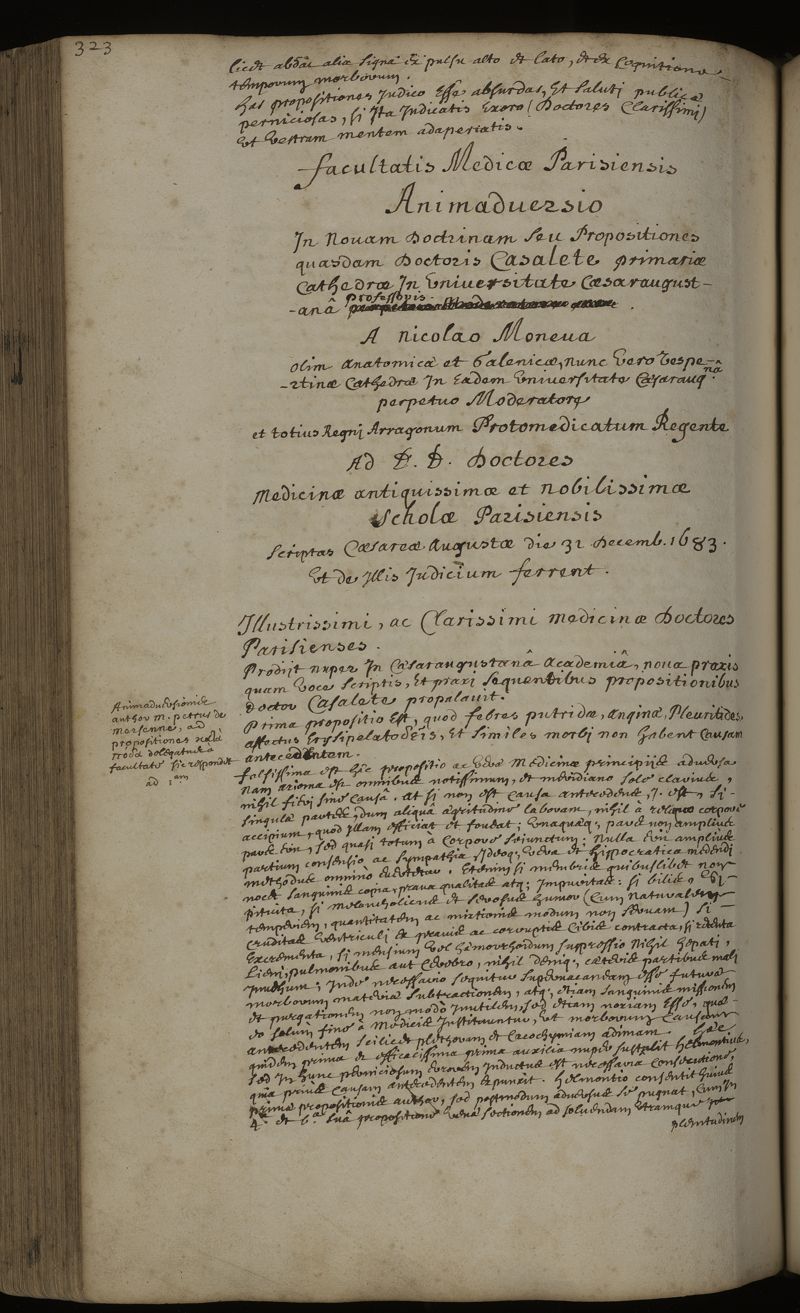 323
licet abdãt alia signa ex pulsu alto et lato, et ex Cognitione
temporum morborum.
has propositiones Judico esse absurdas, et saluti publicæ
perniciosas, si Ita Judicatis Exoro (Doctores Clarissimi)
Ut Vestram mentem adaperiatis.
facultatis Medicæ Parisiensis
Animaduersio
In Nouam Doctrinam seu Propositiones
quasdam Doctoris Casalete primariæ
Cathedræ In Vniuersitate Cæsaraugust-
-anâ Professoris.
A nicolao Moneua
olim Anatomicæ et Galenicæ, nunc Vero Vespe-
-rtinæ Cathedræ In Eadem Vniuersitate Cæsaraug.nâ
perpetuo Moderatore
et totius Regnj Arragonum Protomedicatum Regente
Ad D. D. Doctores
Medicinæ antiquissimæ et nobilissimæ
Scholæ Parisiensis
scriptas Cæsareæ Augustæ die 31 Decemb. 1683.
Vt de Jllis Judicium ferrent.
Jllustrissimi, ac Clarissimi medicinæ Doctores
Parisienses.
Prodijt nuper In Cæsaraugustanâ Academiâ, noua praxis
quam Voce scriptis, et praxi sequentibus propositionibus
Doctor Casalete propalauit.
Prima propositio Est, quod febres putridæ, Anginæ, Pleuritides,
affectus Erysipelatodeis, et similes morbi non habent Causam
antecedentem.
Animaduersionis
author m. petrus de
morsenne, ad
propositiones
facultate sic respondet
ad 1.am
falsissima est hæc propositio ac Veræ Medicinæ principijs aduersa
nam axioma est omnibus notissimum, et meridiano sole clarius,
nihil fieri sine Causâ, at si non est Causa antecedens, J. est, si-
singulæ partes, dum aliquâ ægritudine laborant, nihil à reliquo corpore
accipiunt, quod Jllam efficiat et foueat; Vnaquæq; pars non amplius
pars erit, sed quasi totum à Corpore seiunctum: Nulla erit amplius
partium consensio ac sympathia Jdeoq; Vera et hippocratica medendi
methodus omninò euertetur. Etenim si membris quibuslibet non
nocet sanguinis copia, praua qualitas atq; Impuritas: si bilis, si
pituita, si melancholicus et serosus humor (Cum naturalem
temperiem, quantitatem ac mixtionis modum non seruant) si
cruditas Ventriculi ex prauis ac corruptis Cibis contracta, si retenta
Excrementa, si mensium Vel hæmorrhoidum suppressio Nihil hepati,
Lieni, pulmonibus aut Cerebro, nihil deniq; cæteris partibus mali
Jnuehunt; Jnde necessario sequitur superuacaneam esse futuræ
morborum materiæ subtractionem, atq; etiam sanguinis missionem
et purgationem non modò Jnutilem, sed etiam noxiam Esse, quæ
eo solum fine à Medicis Jnstituuntur, ut morborum Causam
antecedentem scilicet plethoram et Cacochymiam adimant. hæc
quidem prima et efficacissima prima auxilia nuper sustulit helmontius,
sed in hunc perniciosum errorem Jnductus est necessaria Consecutione,
quia prius Causam antecedentem expunxit. helmontio consentit huius
primæ propositionis author, sed postmodum aduersus se pugnat, Cum In
4.a et 6.a suâ propositione Venæ sectionem ad soluendam Vtramque
plenitudinem